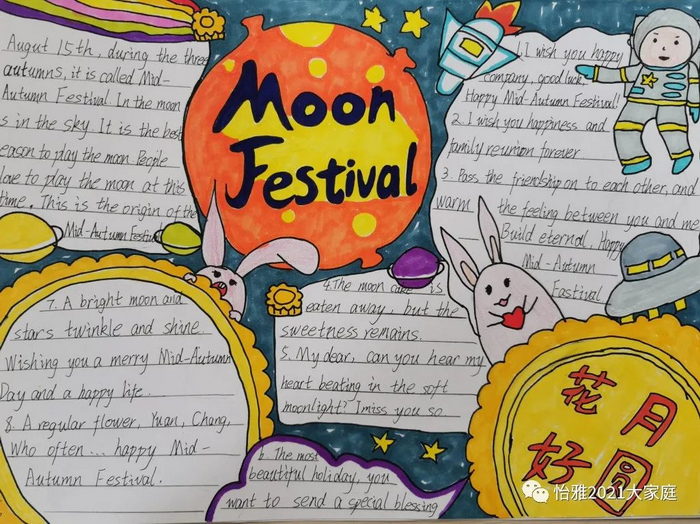 Moon
Festival
Augut 15th, during the three
autumns, it is called Mid-
Autumn Festival In the moon
is in the sky It is the best
eason to play the moon People
love to play the moon at this
time. This is the origin of the
Mid-Autumn Festiva
1. I wish you happy
company, good luck,
Happy Mid-Autumn Festival!
2. I wish you happiness and
family reunion forever
3. Pass the friendship on to each other, and
warm the feeling between you and me
Build eternal, Happy
Mid-Autumn
Fastival
4. The moon cake is
eaten away, but the
sweetness remains.
5. My dear, can you hear my
heart beating in the soft
moonlight? I miss you so
6. The most
beautiful holiday, you
want to send a special blessing
7. A bright moon and
stars twinkle and shine.
Wishing you a merry Mid-Autumn
Day and a happy life.
8. A regular flower, Yuan, Chang,
Who often ... happy Mid-
Autumn Festival.
花月
好圆
怡雅2021大家庭